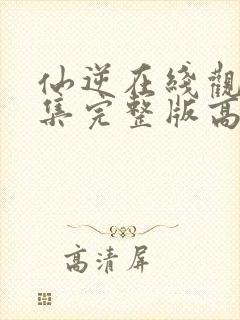 仙逆在綫觀
集完整版高
高清屏